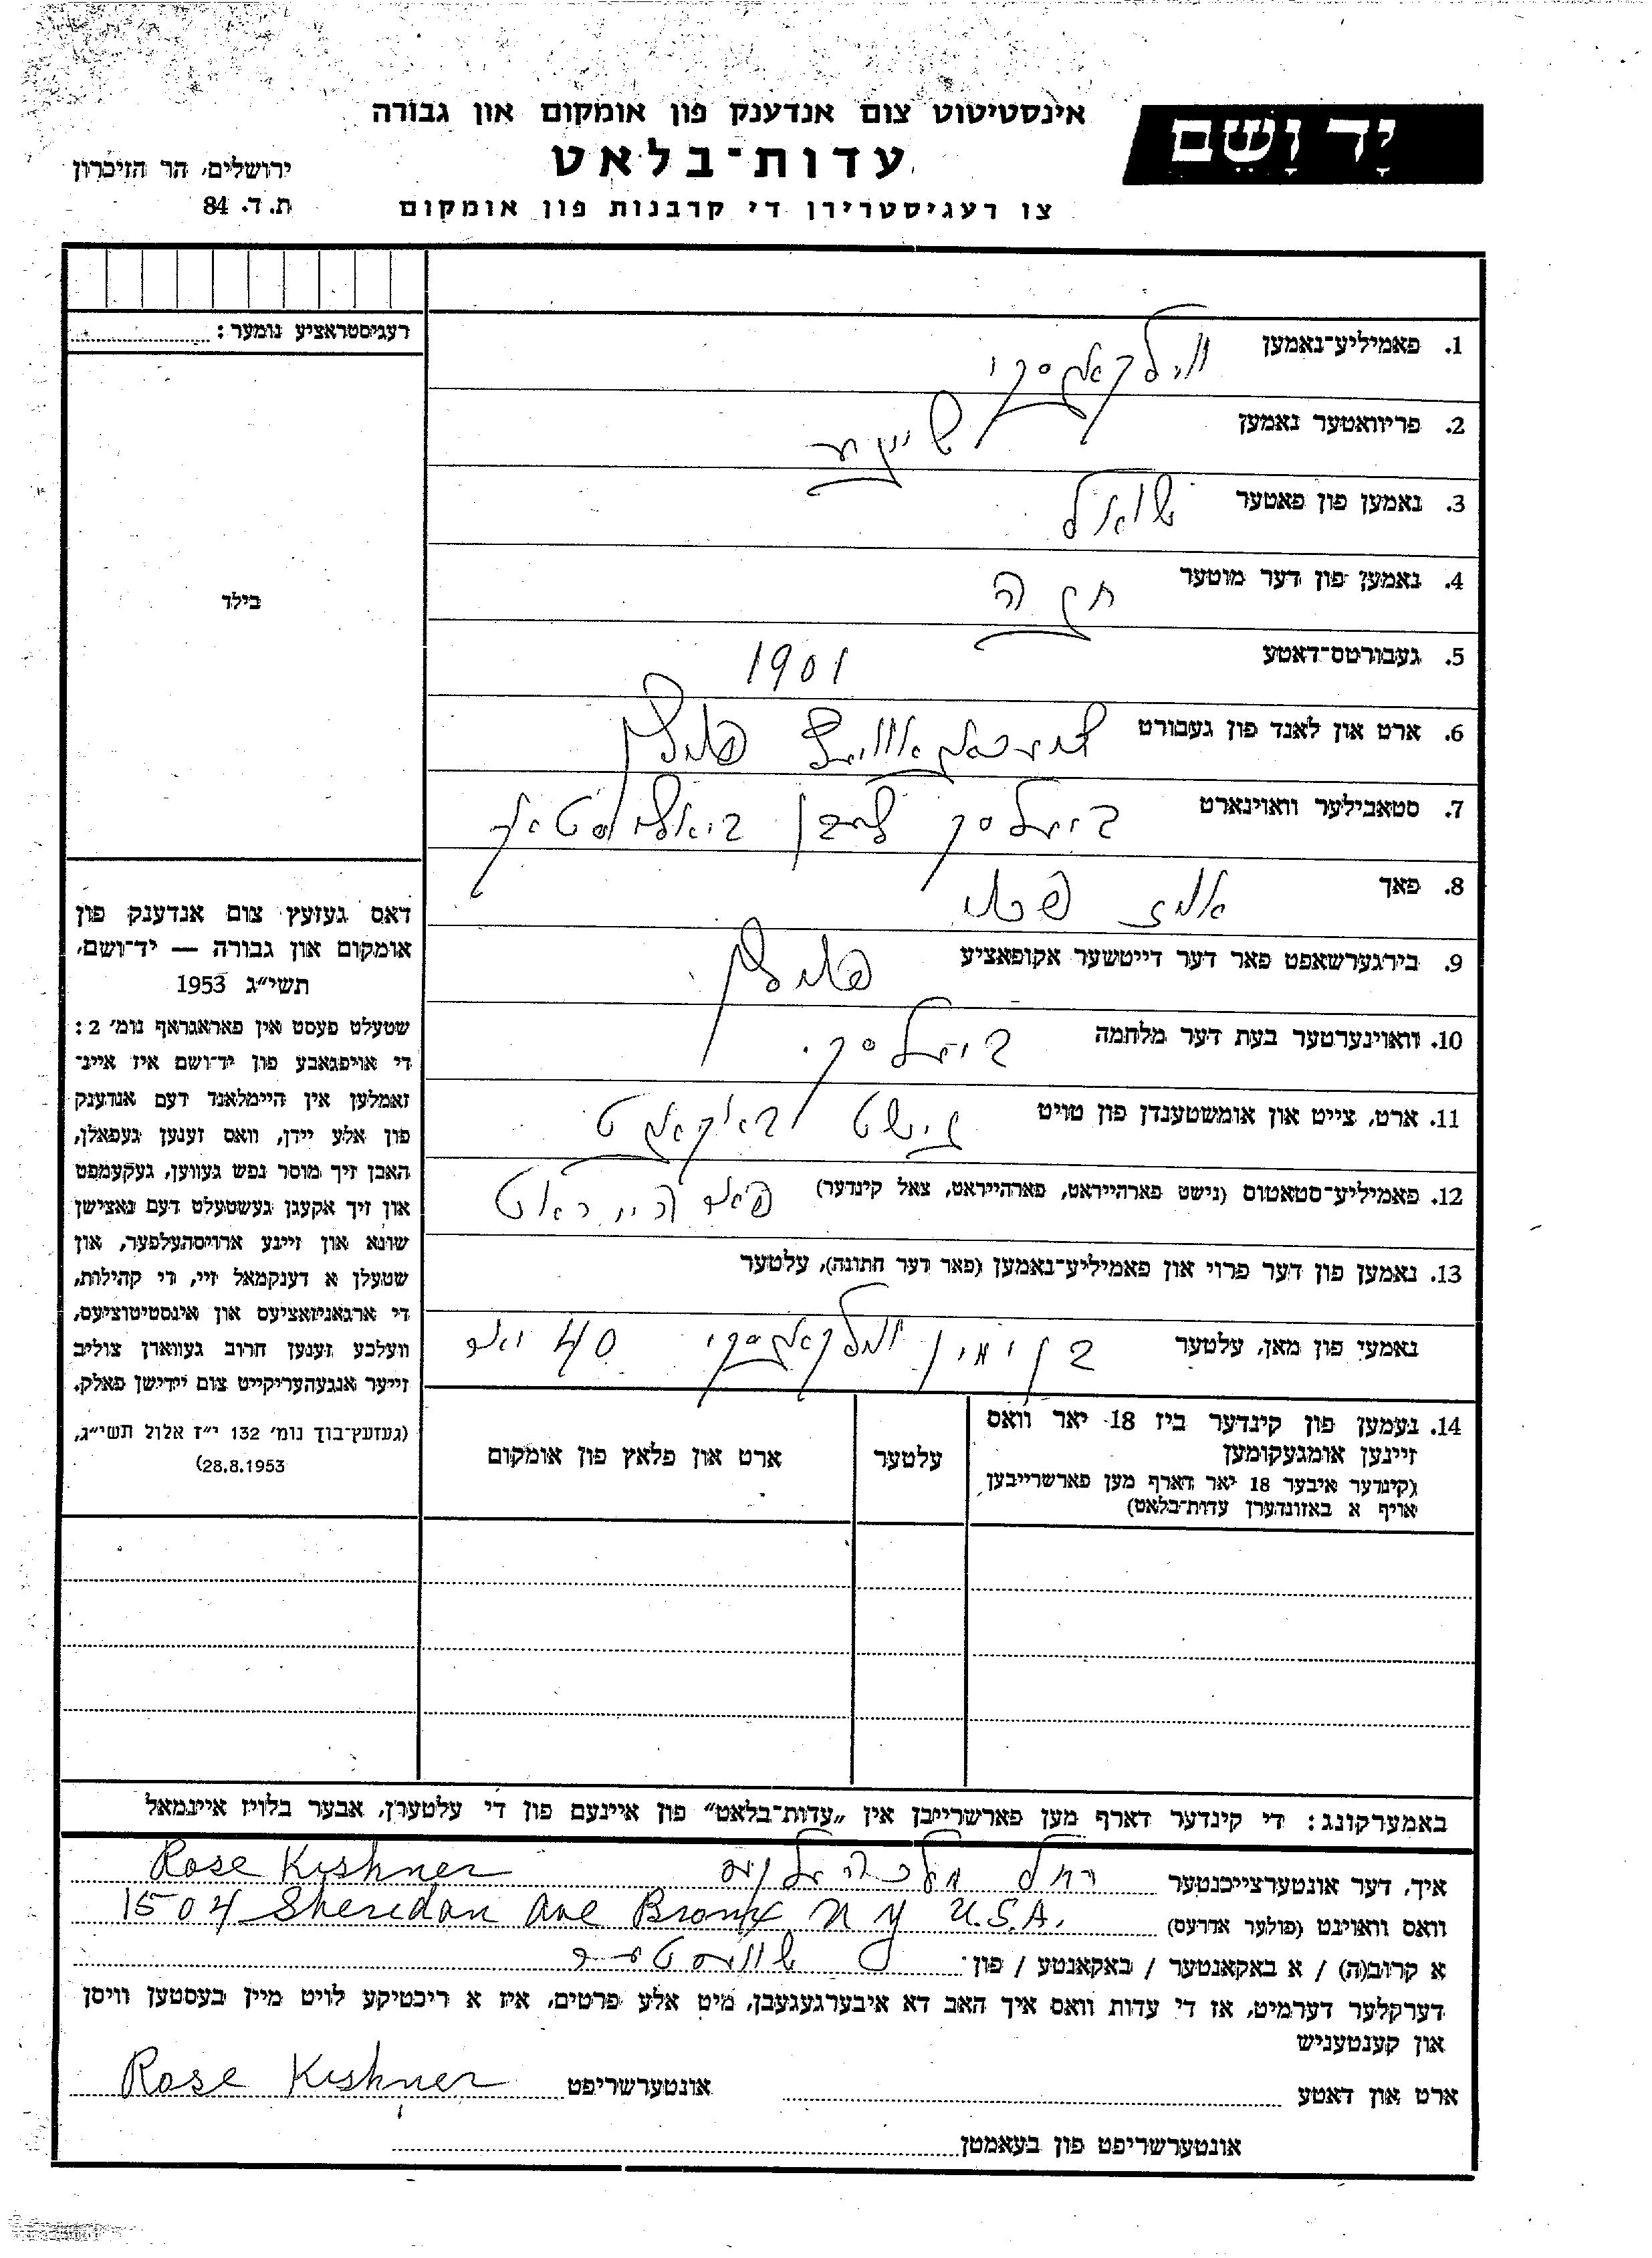 יָד וָשֵׁם
אינסטיטוט צום אנדענק פון אומקום און גבורה
עדות־בלאט
צו רעגיסטרירן די קרבנות פון אומקום
ירושלים, הר הזיכרון
ת. ד. 84
רעגיסטראציע נומער:
בילד
דאס געזעץ צום אנדענק פון
אומקום און גבורה — יד־ושם,
תשי״ג 1953
שטעלט פעסט אין פאראגראף נומ׳ 2:
די אויפגאבע פון יד־ושם איז איינ־
זאמלען אין היימלאנד דעם אנדענק
פון אלע יידן, וואס זענען געפאלן,
האבן זיך מוסר נפש געווען, געקעמפט
און זיך אקעגן געשטעלט דעם נאצישן
שונא און זיינע ארויסהעלפער, און
שטעלן א דענקמאל זיי, די קהילות,
די ארגאניזאציעס און אינסטיטוציעס,
וועלכע זענען חרוב געווארן צוליב
זייער אנגעהעריקייט צום יידישן פאלק.
(געזעץ־בוך נומ׳ 132 י״ז אלול תשי״ג,
28.8.1953)
1. פאמיליע־נאמען ווילקאנסקי
2. פריוואטער נאמען שיינע
3. נאמען פון פאטער שואל
4. נאמען פון דער מוטער חנה
5. געבורטס־דאטע 1901
6. ארט און לאנד פון געבורט פוילן
7. סטאבילער וואוינארט ביעלסק לעבן ביאליסטאק
8. פאך
9. בירגערשאפט פאר דער דייטשער אקופאציע פוילן
10. וואוינערטער בעת דער מלחמה ביעלסק.
11. ארט, צייט און אומשטענדן פון טויט נישט באקאנט
12. פאמיליע־סטאטוס (נישט פארהייראט, פארהייראט, צאל קינדער) פארהייראט
13. נאמען פון דער פרוי און פאמיליע־נאמען (פאר דער חתונה), עלטער
נאמען פון מאן, עלטער בנימין ווילקאנסקי 40 יאר
14. נעמען פון קינדער ביז 18 יאר וואס
זיינען אומגעקומען
(קינדער איבער 18 יאר דארף מען פארשרייבען
אויף א באזונדערן עדות־בלאט)
עלטער
ארט און פלאץ פון אומקום
באמערקונג: די קינדער דארף מען פארשרייבן אין „עדות־בלאט” פון איינעם פון די עלטערן, אבער בלויז איינמאל
איך, דער אונטערצייכנטער רחל Rose Kushner
וואס וואוינט (פולער אדרעס) 1504 Sheridan Ave Bronx N Y U.S.A.
א קרוב(ה) / א באקאנטער / באקאנטע / פון שוועסטער
דערקלער דערמיט, אז די עדות וואס איך האב דא איבערגעגעבן, מיט אלע פרטים, איז א ריכטיקע לויט מיין בעסטען וויסן
און קענטעניש
ארט און דאטע אונטערשריפט Rose Kushner
אונטערשריפט פון בעאמטן